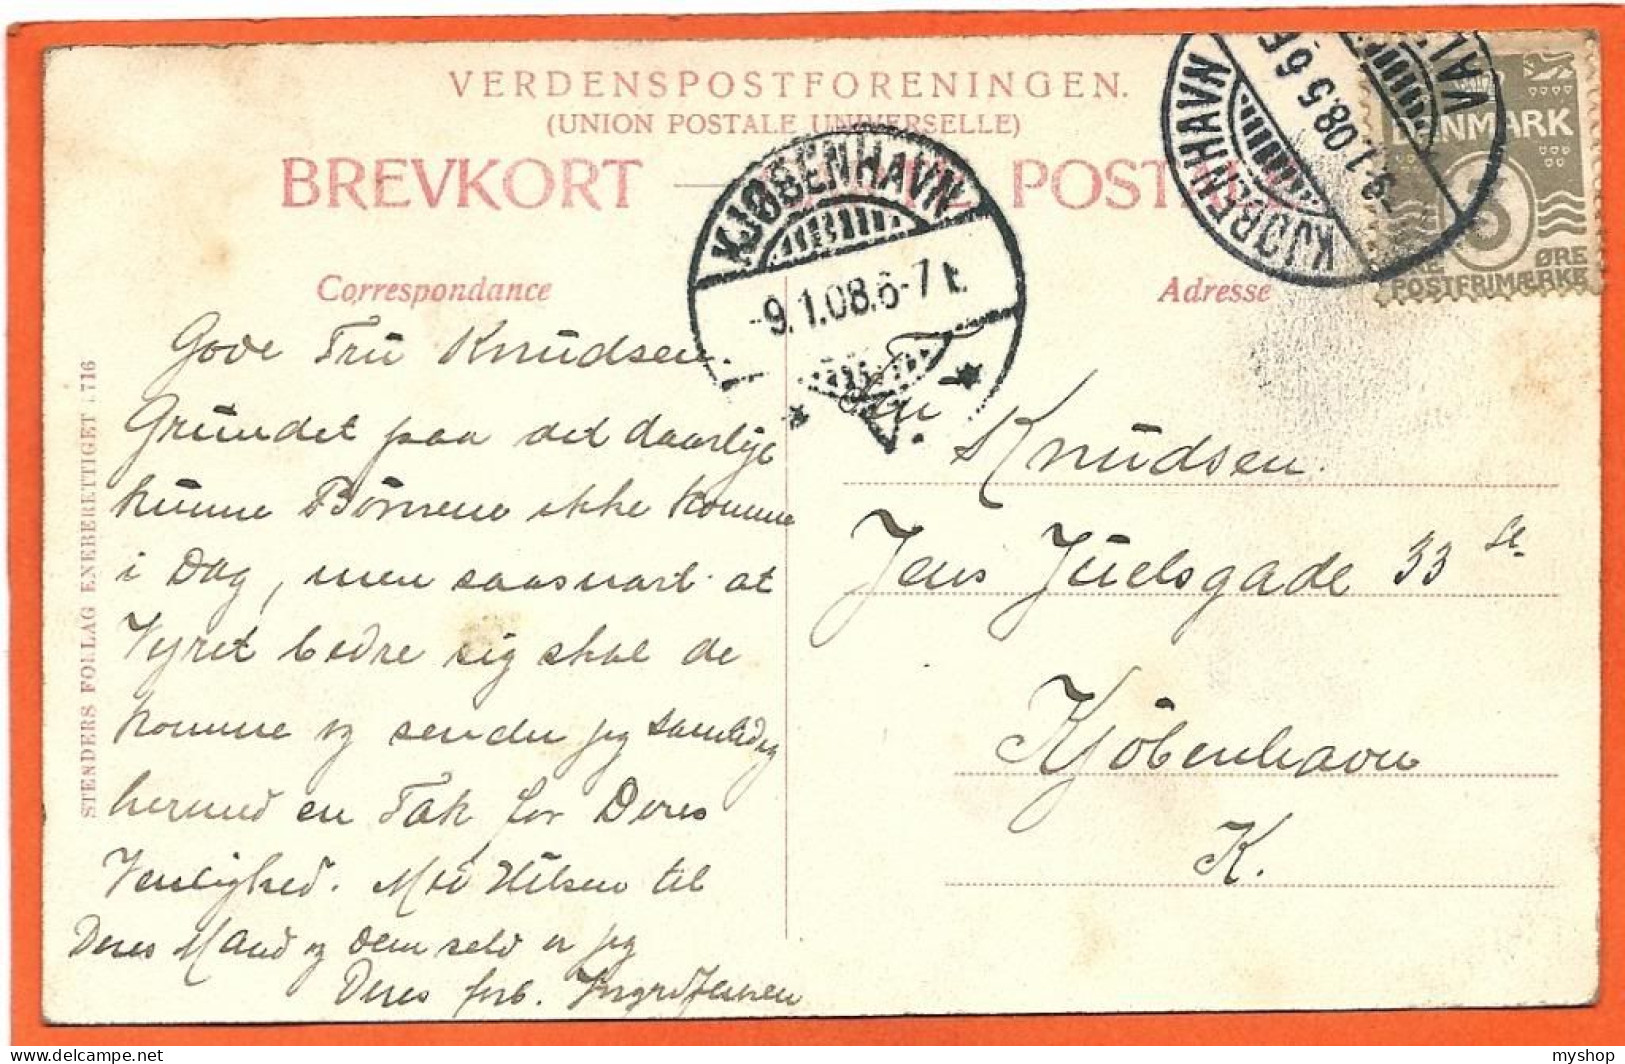 VERDENSPOSTFORENINGEN.
(UNION POSTALE UNIVERSELLE)
BREVKORT — POST
Correspondance
Adresse
KJØBENHAVN
-9.1.08.6-7 E.
KJØBENHAVN VAL
-9.1.08.5 6 E
DANMARK
3
ØRE
POSTFRIMÆRKE
STENDERS FORLAG ENEBERETTIGET 1716
Gode Fru Knudsen.
Grundet paa det daarlige
kunne Börnene ikke komme
i Dag, men saasnart at
Vejret bedre sig skal de
komme og sender jeg samtidig
hermed en Tak for Deres
Venlighed. Mrk Hilsen til
Deres Mand og Dem selv er jeg
Deres forb. Ingrid Jensen
Fru
Knudsen.
Jens Juelsgade 33 St.
Kjöbenhavn
K.
myshop